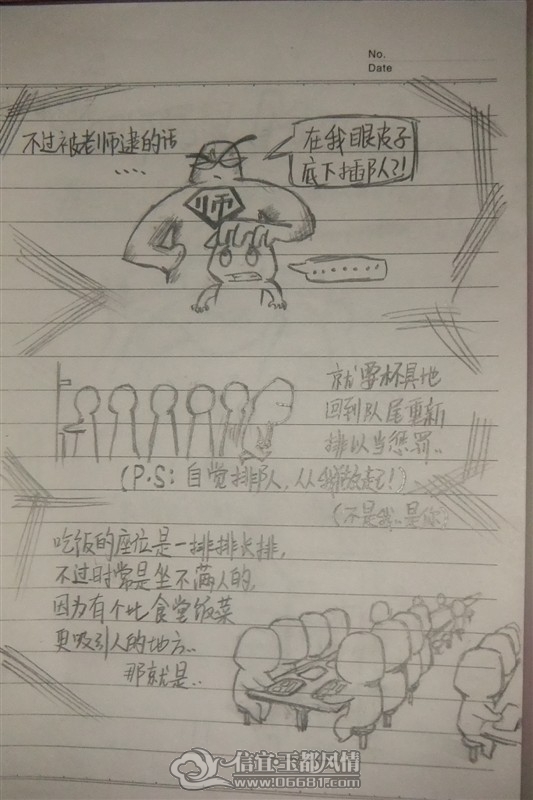 No.
Date
不过被老师逮的话
....
在我眼皮子
底下插队?!
师
.......
就要杯具地
回到队尾重新
排以当惩罚..
(P.S: 自觉排队,从我做起!)
(不是我..是你)
吃饭的座位是一排排长排,
不过时常是坐不满人的,
因为有个比食堂饭菜
更吸引人的地方..
那就是..
信宜·玉都风情
www.06681.com